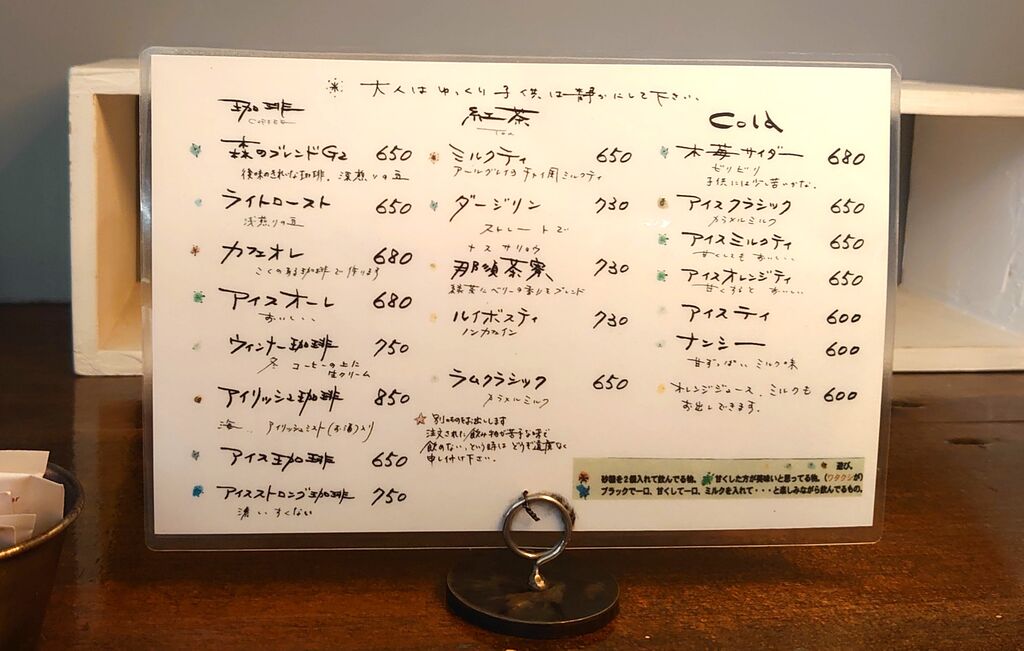 大人はゆっくり 子供は静かにして下さい。
珈琲
COFFEE
森のブレンドG2 650
後味のきれいな珈琲. 深煎りの豆
ライトロースト 650
浅煎りの豆
カフェオレ 680
こくのある珈琲で作ります
アイスオーレ 680
おいしい、、
ウィンナー珈琲 750
冬 コーヒーの上に
生クリーム
アイリッシュ珈琲 850
アイリッシュミスト(お酒)入り
アイス珈琲 650
アイスストロング珈琲 750
濃い すくない
紅茶
Tea
ミルクティ 650
アールグレイ チャイ用 ミルクティ
ダージリン 730
ストレートで
ナス サリョウ
那須茶寮 730
緑茶にベリーの香りをブレンド
ルイボスティ 730
ノンカフェイン
ラムクラシック 650
カラメルミルク
別のものをお出しします
注文された飲み物が苦手な味で
飲めない、という時は どうぞ遠慮なく
申し付け下さい。
Cold
木苺サイダー 680
ビリビリ
子供には少し苦いかな。
アイスクラシック 650
カラメルミルク
アイスミルクティ 650
甘くしても おいしい、、
アイスオレンジティ 650
甘くすると おいしい
アイスティ 600
ナンシー 600
甘ずっぱい ミルク味
オレンジジュース、ミルクも 600
お出しできます.
遊び。
砂糖を2個入れて飲んでる物。 甘くした方が美味いと思ってる物。(ワタクシが)
ブラックで一口、甘くして一口、ミルクを入れて・・・と楽しみながら飲んでるもの。